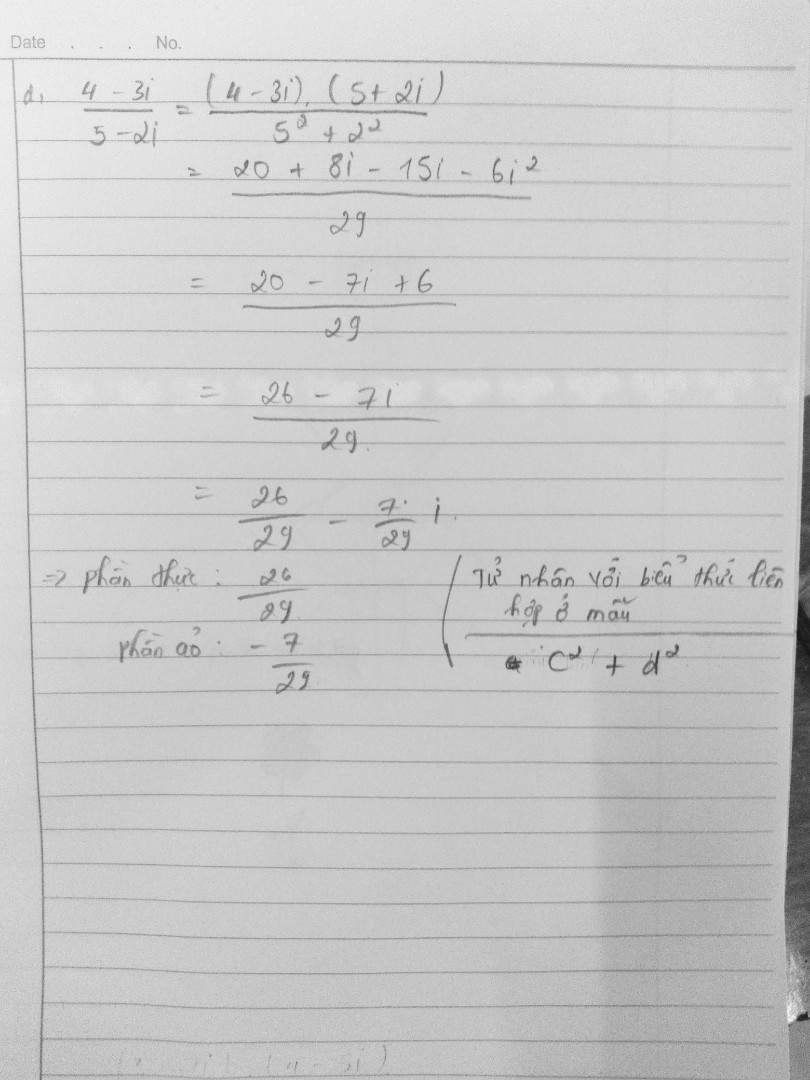 Date . . . No.
d, 4 - 3i / 5 - 2i = (4 - 3i).(5 + 2i) / 5² + 2²
= 20 + 8i - 15i - 6i² / 29
= 20 - 7i + 6 / 29
= 26 - 7i / 29.
= 26/29 - 7/29 i.
=> phần thực : 26/29
phần ảo : - 7/29
Tử nhân với biểu thức liên
hợp ở mẫu
c² + d²